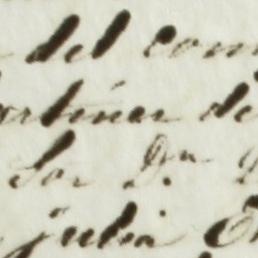 del com
ortinez de
Sor Dn
julia